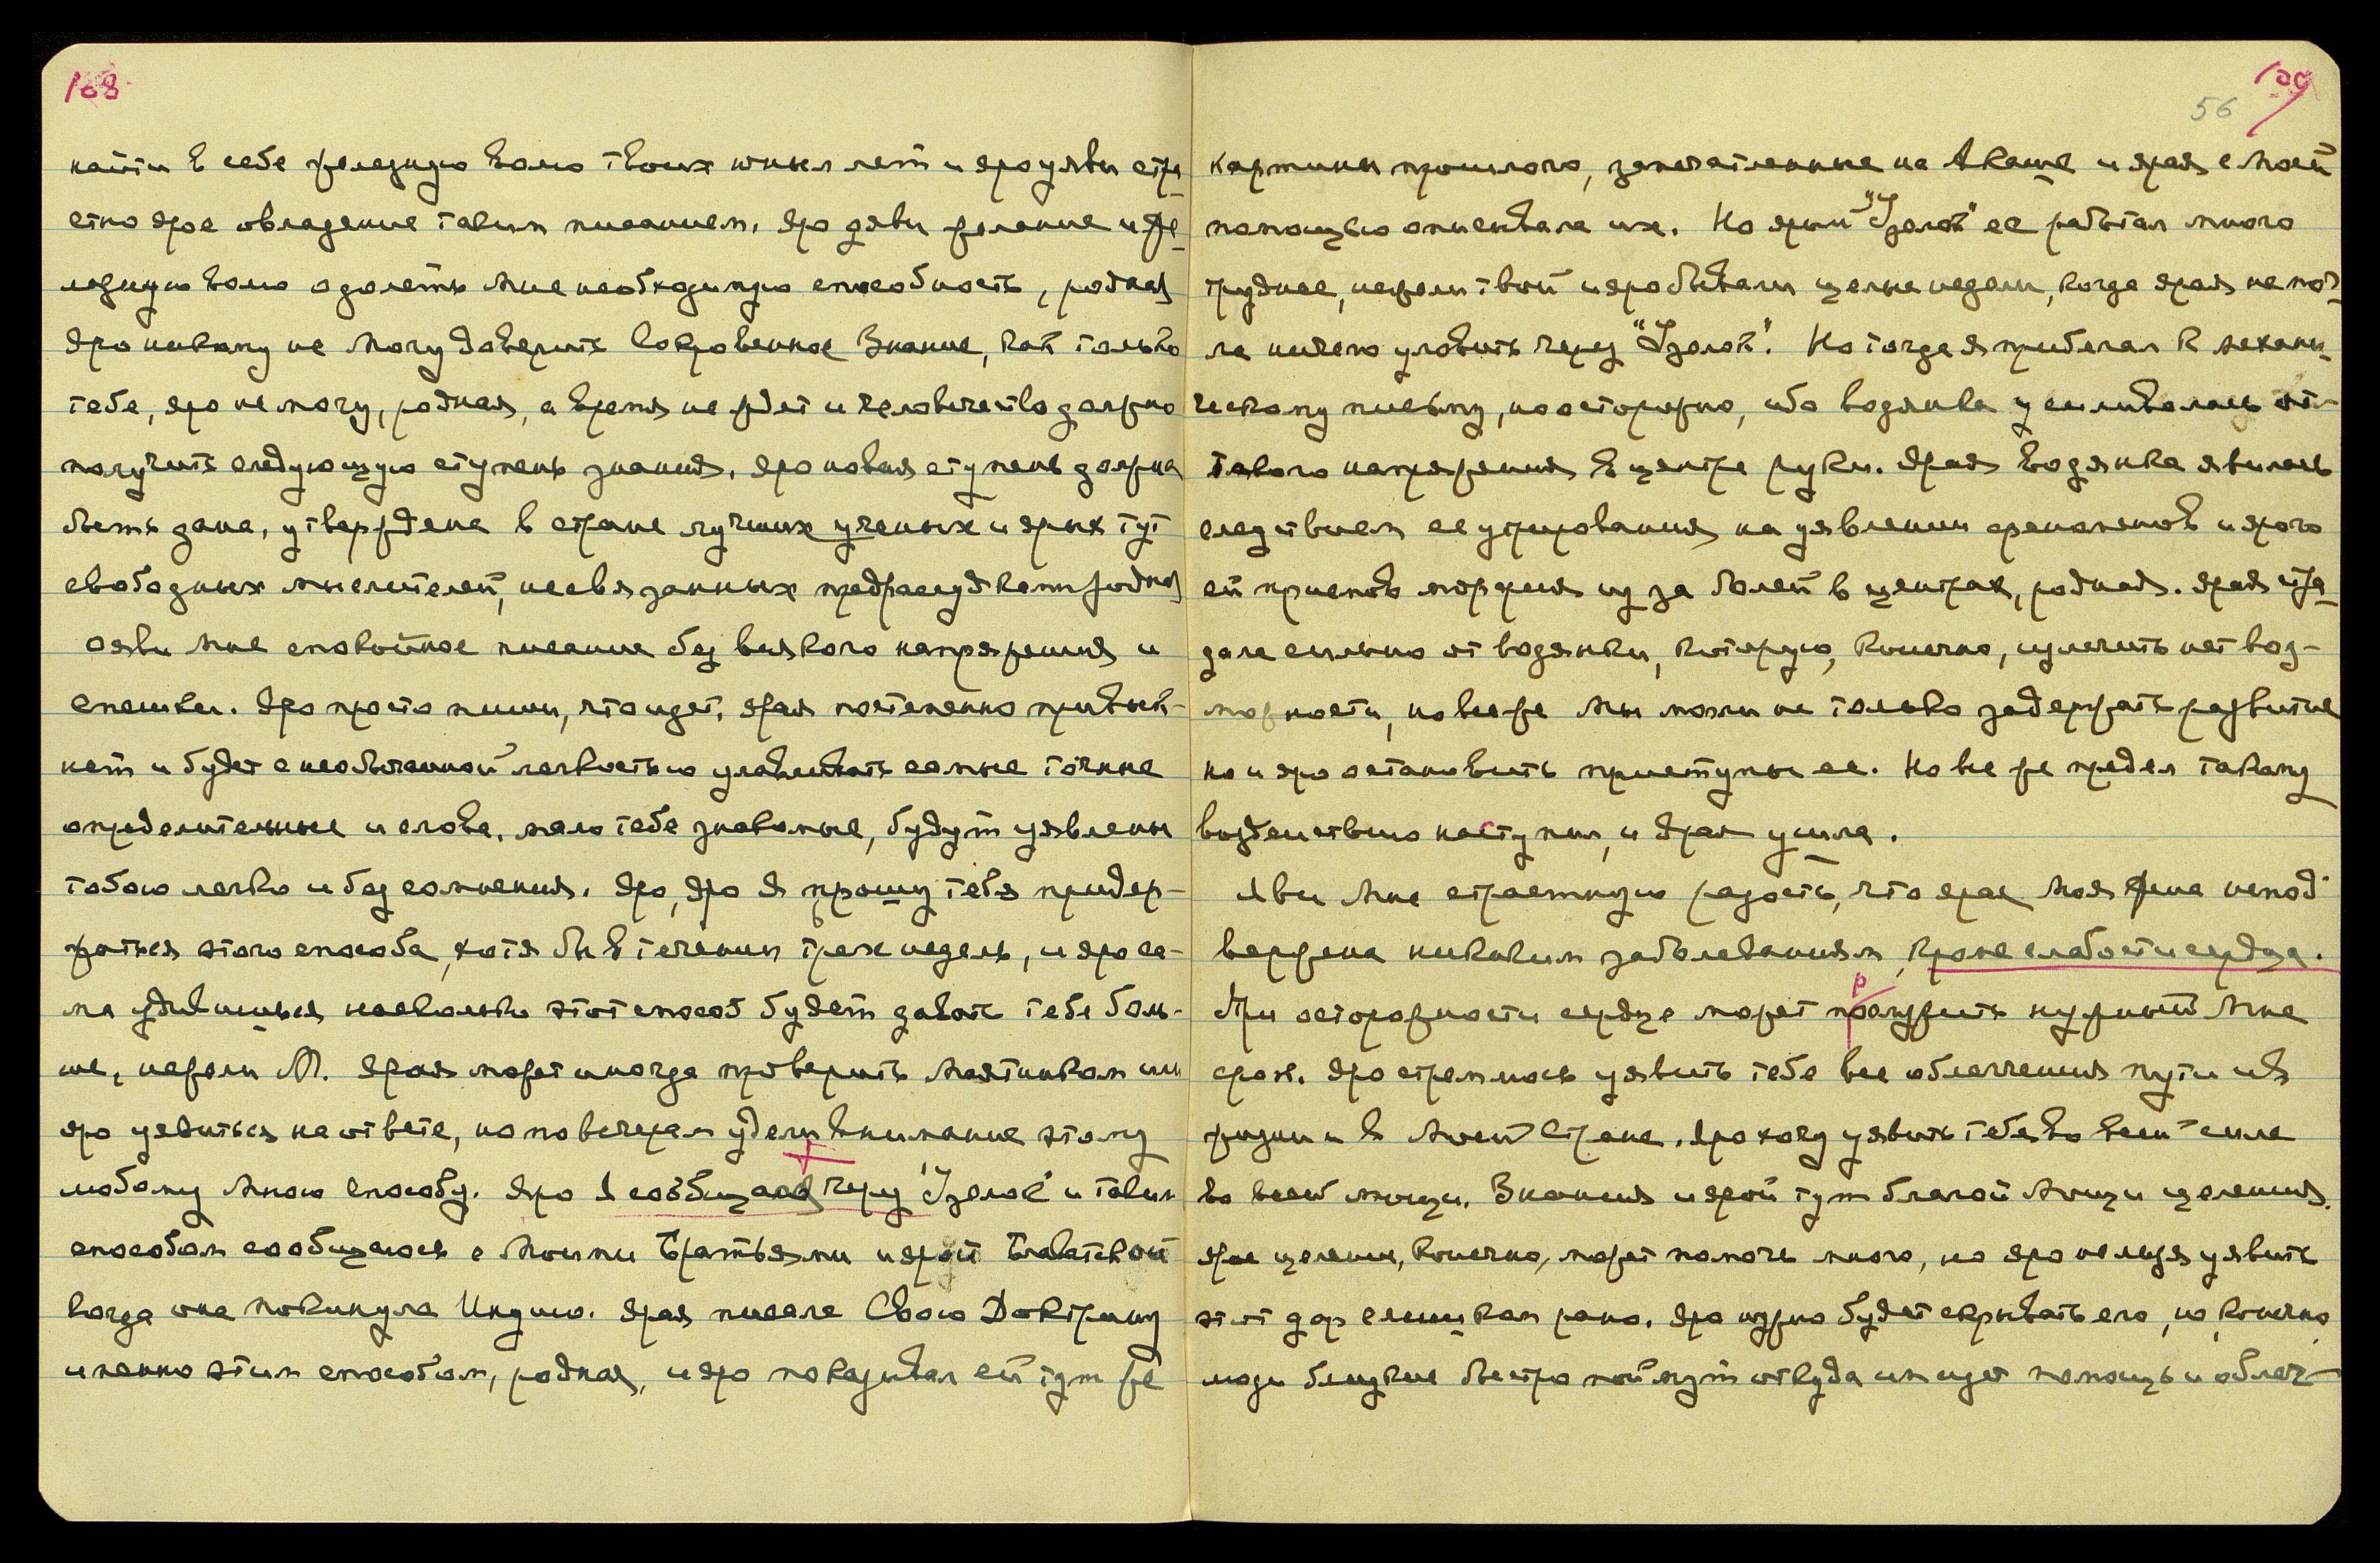 108
найти в себе железную волю твоих юных лет и яро уяви стра-
стно ярое овладение таким писанием. Яро уяви желание и же-
лезную волю одолеть Мне необходимую способность, родная
Яро никому не могу доверить Сокровенное Знание, как только
тебе, яро не могу, родная, а время не ждет и человечество должно
получить следующую ступень знания. Яро новая ступень должна
быть дана, утверждена в стране лучших ученых и ярых тут
свободных мыслителей, несвязанных предрассудками, родная
ояви Мне спокойное писание без всякого напряжения и
спешки. Яро просто пиши, что идет. Ярая постепенно привык-
нет и будет с необычайной легкостью улавливать самые точные
определительные и слова, мало тебе знакомые, будут уявлены
тобою легко и без сомнения. Яро, яро Я прошу тебя придер-
жаться этого способа, хотя бы в течении трех недель, и яро са-
ма удивишься насколько этот способ будет давать тебе боль-
ше, нежели М. Ярая может иногда проверить Маятником или
яро уявиться на ответе, но по вечерам удели внимание этому
любому Мною способу. Яро Я сообщаюсь через "Уделок" и таким
способом сообщаюсь с Моими Братьями и ярой Блаватской
когда она покинула Индию. Ярая писала Свою Доктрину
именно этим способом, родная, и яро показывал ей тут же
109
56
картины прошлого, запечатленные на Акаше и ярая с Моей
помощью описывала их. Но ярый "Уделок" ее работал много
труднее, нежели твой и яро бывали целые недели, когда ярая не мог-
ла ничего уловить через "Уделок". Но тогда я прибегал к механи-
ческому письму, но осторожно, ибо водянка усиливалась от
такого напряжения в центре руки. Ярая водянка явилась
следствием ее утрирования на уявлении феноменов и ярого
ей приемов морфия из за болей в центрах, родная. Ярая стра-
дала сильно от водянки, которую, конечно, излечить нет воз-
можности, но все же мы могли не только задержать развитие
но и яро остановить приступы ее. Но все же предел такому
воздействию наступил, и Ярая ушла.
Яви Мне страстную радость, что ярая Моя жена непод-
вержена никаким заболеваниям, кроме слабости сердца.
При осторожности сердце может прослужить нужный Мне
срок. Яро стремлюсь уявить тебе все облегчения пути из
жизни и в Моей Стране. Яро хочу уявить тебя во всей силе
во всей мощи. Знания и ярой тут благой Мощи целения.
Ярое целение, конечно, может помочь много, но яро нельзя уявить
этот дар слишком рано. Яро нужно будет скрывать его, но, конечно
люди близкие быстро поймут откуда им идет помощь и облег-